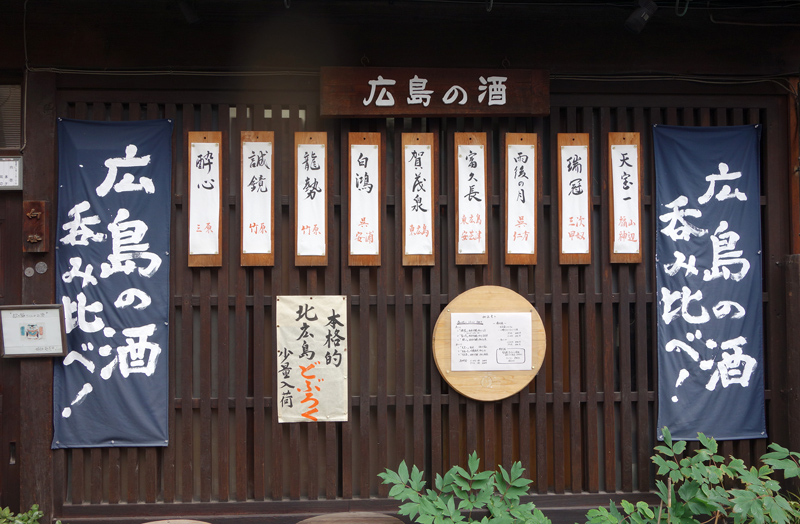 広島の酒
広島の酒
呑み比べ!
天宝一
福山
神辺
瑞冠
三次
甲奴
雨後の月
呉
仁方
富久長
東広島
安芸津
賀茂泉
東広島
白鴻
呉
安浦
龍勢
竹原
誠鏡
竹原
酔心
三原
広島の酒
呑み比べ!
本格的
北広島どぶろく
少量入荷